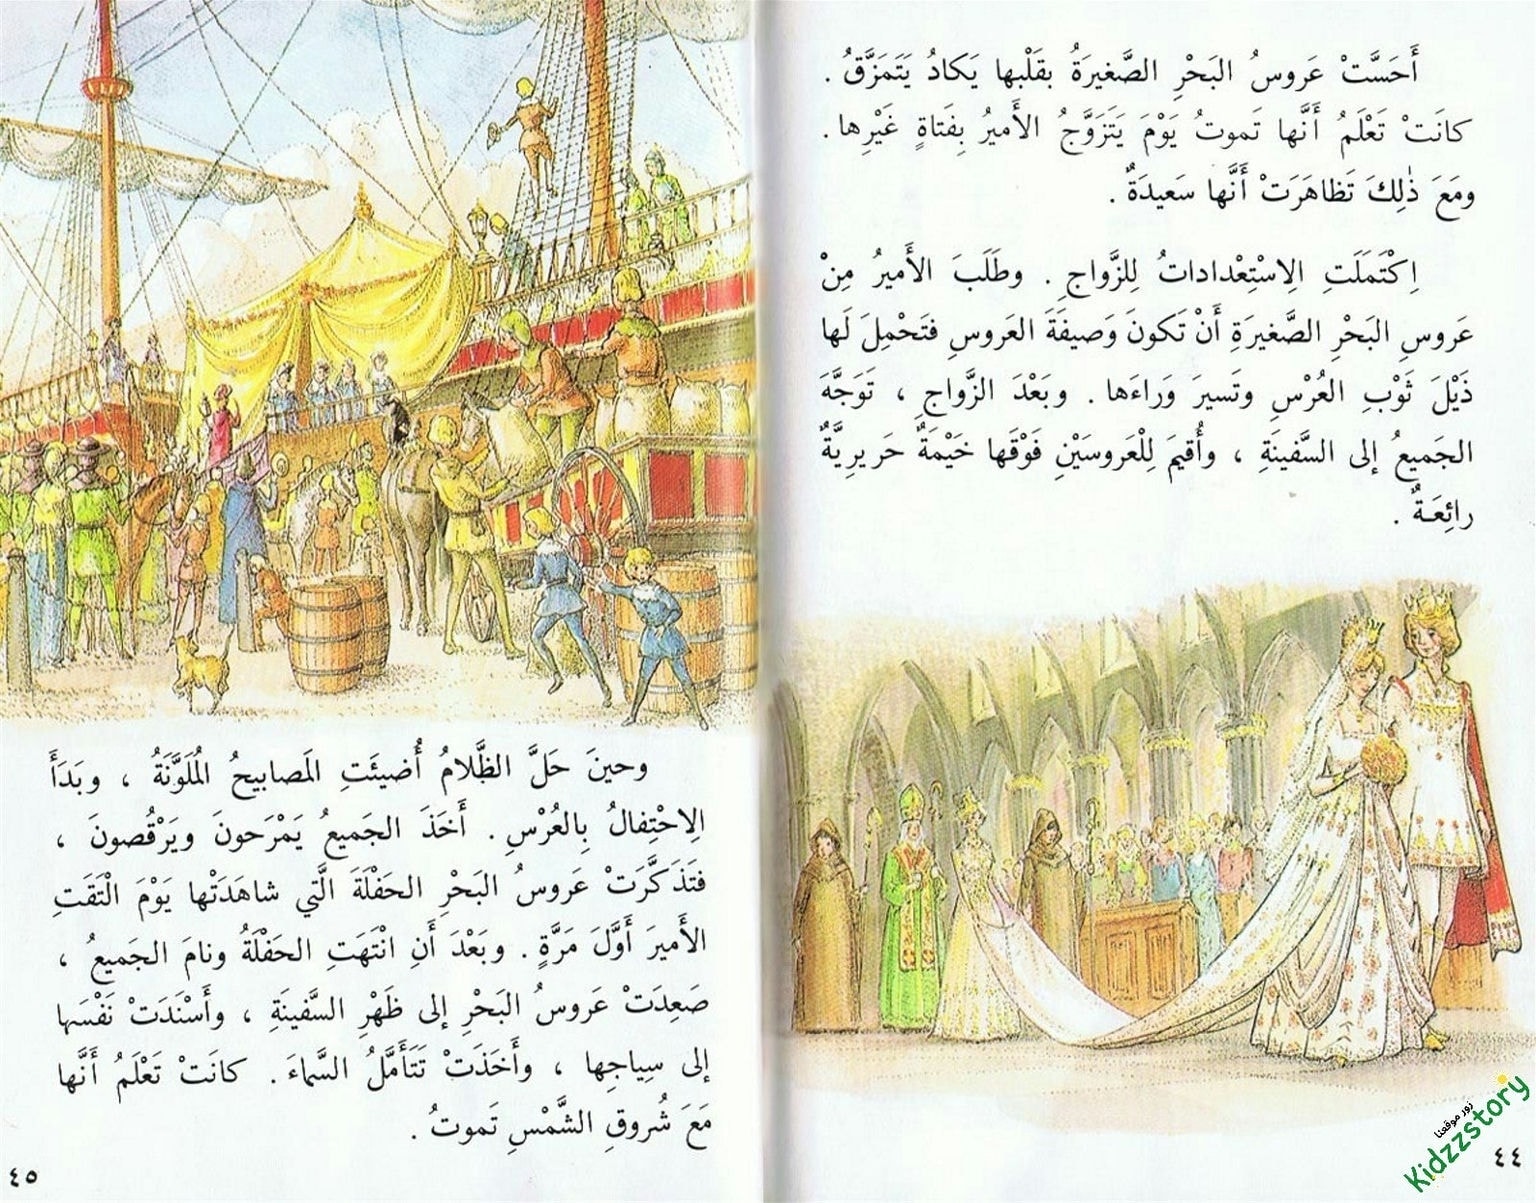 أَحَسَّتْ عَروسُ البَحْرِ الصَّغيرَةُ بقَلْبها يَكادُ يَتَمَزَّقُ .
كانَتْ تَعْلَمُ أَنَّها تَموتُ يَوْمَ يَتَزَوَّجُ الأَميرُ بِفَتاةٍ غَيْرِها .
ومَعَ ذٰلِكَ تَظاهَرَتْ أَنَّها سَعيدَةٌ .
اِكْتَمَلَتِ الِاسْتِعْداداتُ لِلزَّواجِ . وطَلَبَ الأَميرُ مِنْ
عَروسِ البَحْرِ الصَّغيرَةِ أَنْ تَكونَ وَصيفَةَ العَروسِ فتَحْمِلَ لَها
ذَيْلَ ثَوْبِ العُرْسِ وتَسيرَ وَراءَها . وبَعْدَ الزَّواجِ ، تَوَجَّهَ
الجَميعُ إلى السَّفينَةِ ، وأُقيمَ لِلْعَروسَيْنِ فَوْقَها خَيْمَةٌ حَريريَّةٌ
رائِعَةٌ .
٤٤
وحينَ حَلَّ الظَّلامُ أُضيئَتِ المَصابيحُ المُلَوَّنَةُ ، وبَدَأَ
الِاحْتِفالُ بِالعُرْسِ . أَخَذَ الجَميعُ يَمْرَحونَ ويَرْقُصونَ ،
فتَذَكَّرَتْ عَروسُ البَحْرِ الحَفْلَةَ الَّتي شاهَدَتْها يَوْمَ الْتَقَتِ
الأَميرَ أَوَّلَ مَرَّةٍ . وبَعْدَ أَنِ انْتَهَتِ الحَفْلَةُ ونامَ الجَميعُ ،
صَعِدَتْ عَروسُ البَحْرِ إلى ظَهْرِ السَّفينَةِ ، وأَسْنَدَتْ نَفْسَها
إلى سِياجِها ، وأَخَذَتْ تَتَأَمَّلُ السَّماءَ . كانَتْ تَعْلَمُ أَنَّها
مَعَ شُروقِ الشَّمْسِ تَموتُ .
٤٥
زور موقعنا
Kidzzstory